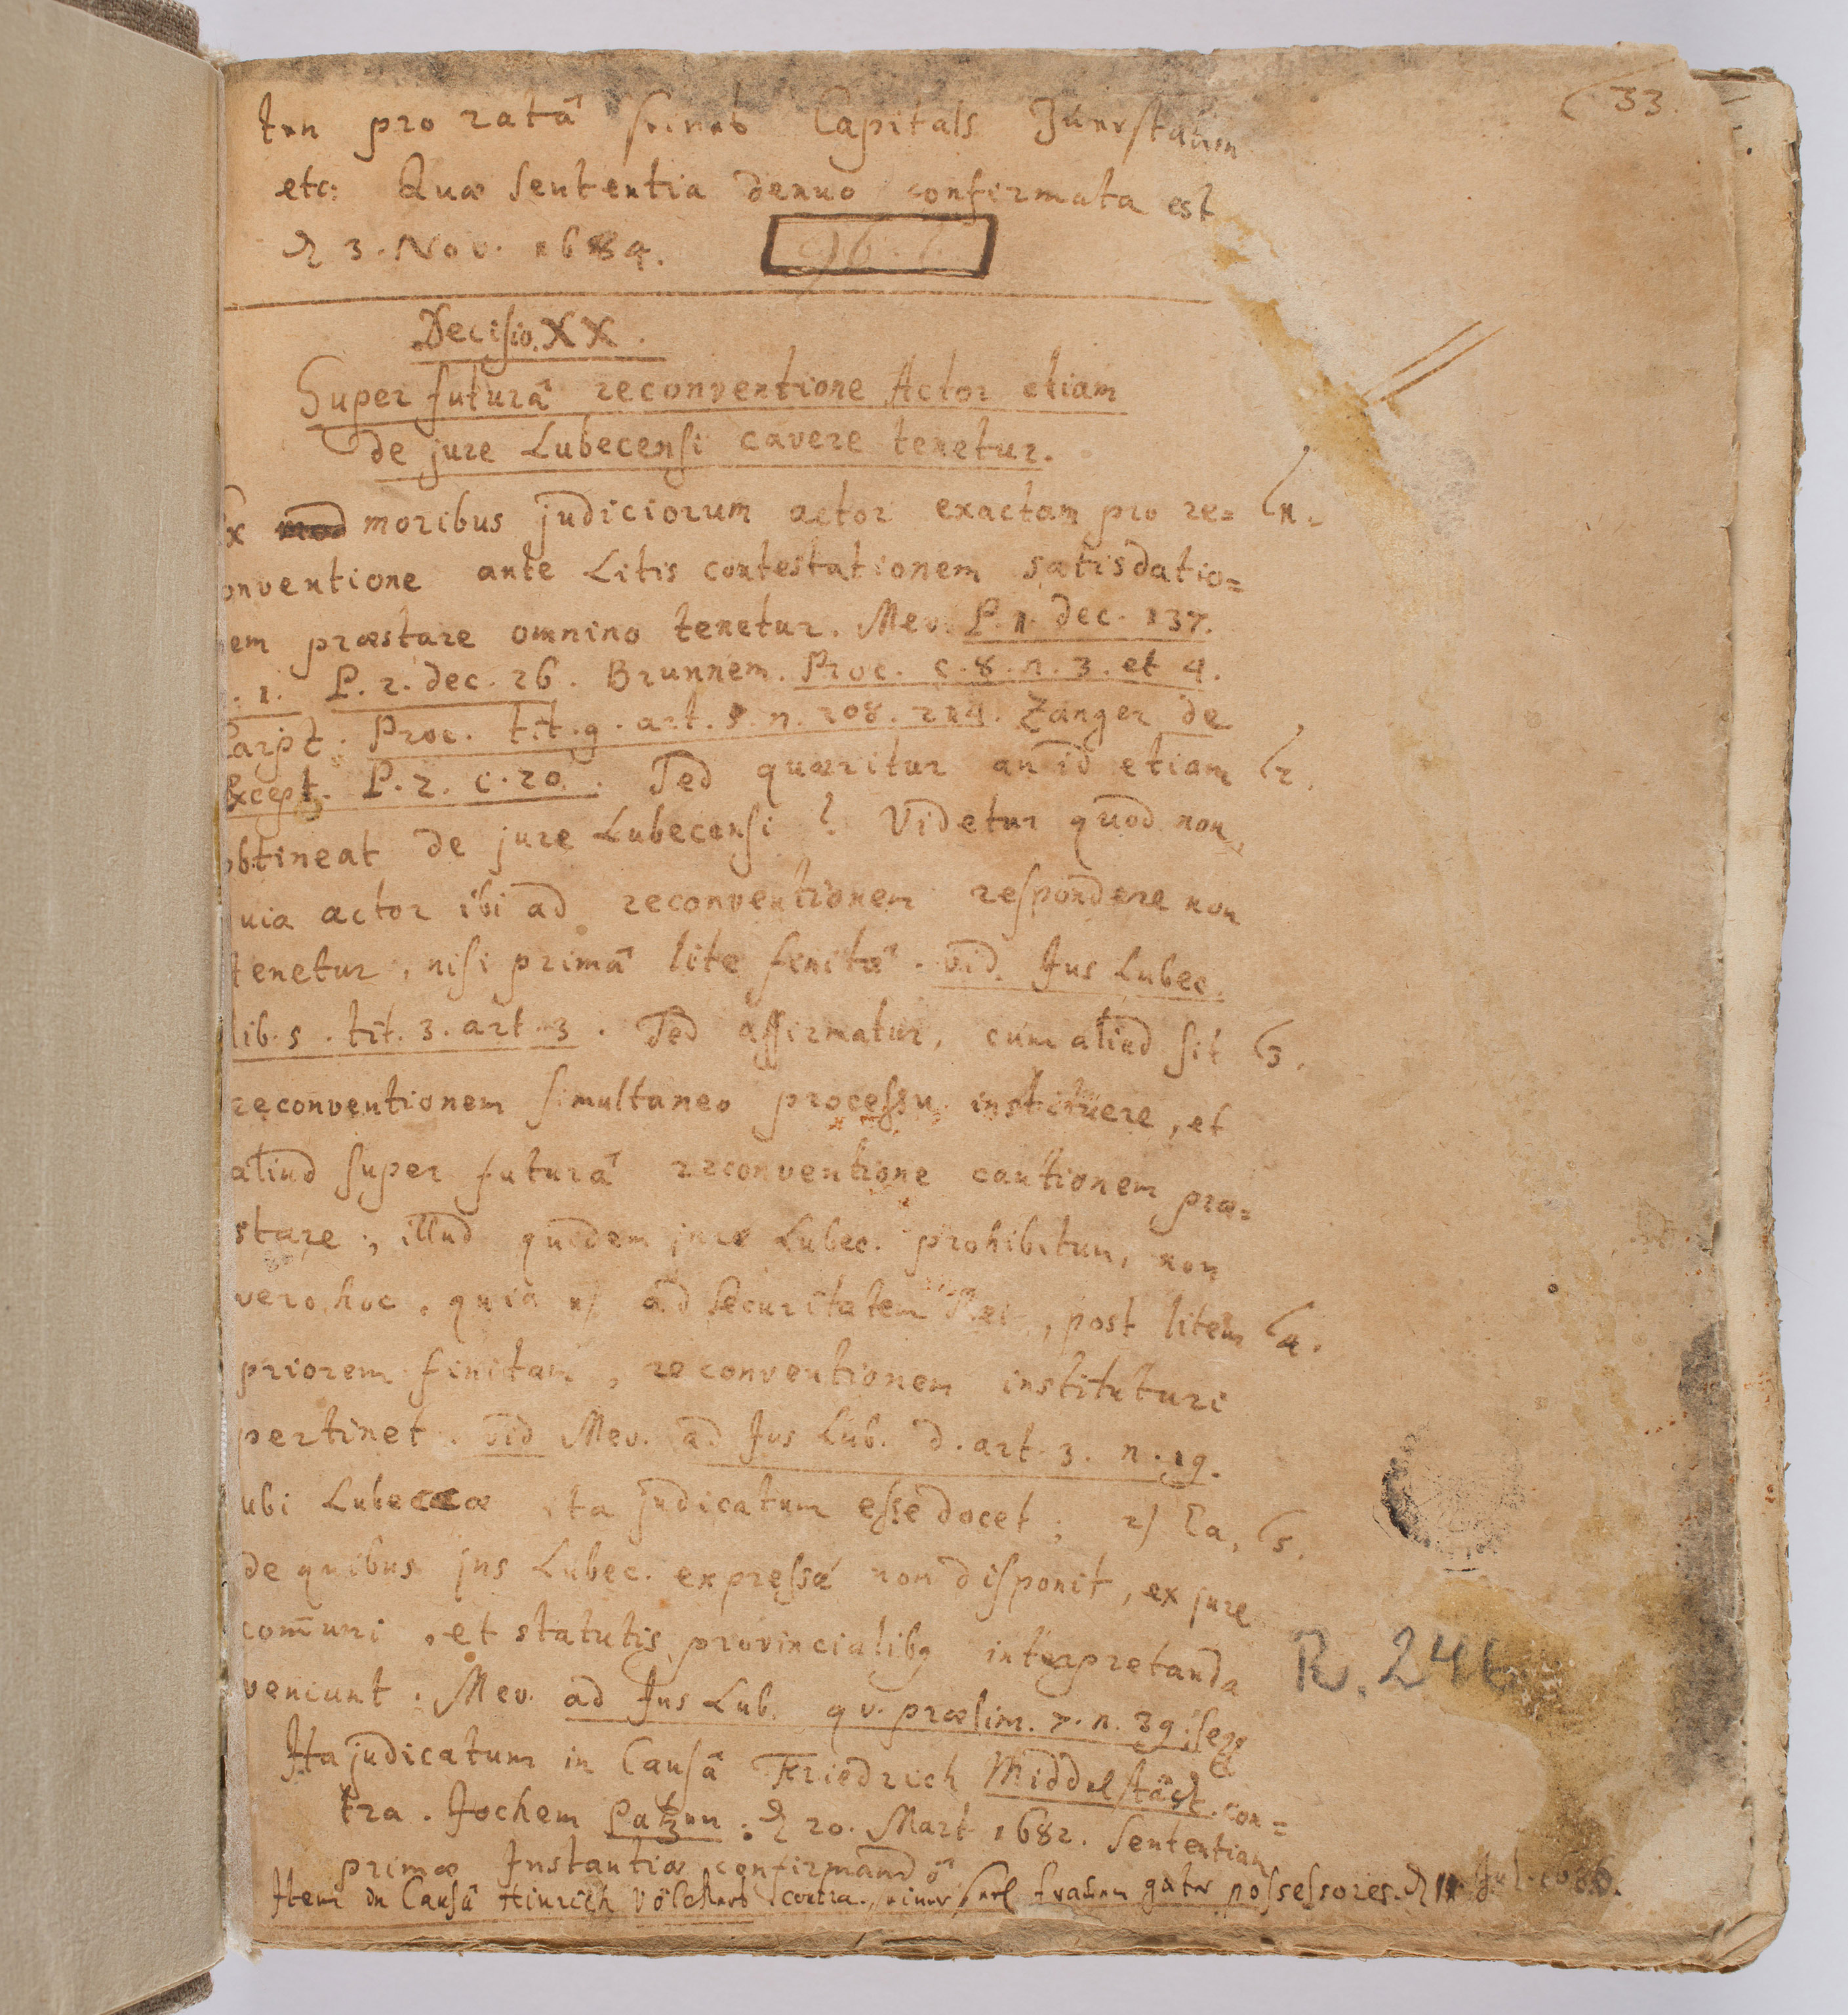 33.
pro ratâ seines Capitals
etc: Quæ sententia denuo confirmata est
d 3. Nov. 1684.
Decisio. XX.
Super futurâ reconventione Actor etiam
de jure Lubecensi cavere tenetur.
Ex moribus judiciorum actor exactam pro re= 1.
onventione ante Litis contestationem satisdatio=
em præstare omnino tenetur. Mev. P. 1. dec. 137.
. 1. P. 2. dec. 26. Brunnem. Proc. c. 8. n. 3. et 4.
Carpz. Proc. tit. 9. art. 5. n. 208. 214. Zanger de
Except. P. 2. c. 20. Sed quæritur an id etiam 2.
obtineat de jure Lubecensi? Videtur quod non,
uia actor ibi ad reconventionem respondere non
tenetur, nisi primâ lite finitâ. vid. Jus Lubec.
lib. 5. tit. 3. art. 3. Sed affirmatur, cum aliud sit 3.
reconventionem simultaneo processu instituere, et
aliud super futurâ reconventione cautionem præ=
stare, illud quidem jure Lubec. prohibitum, non
vero hoc, quia 1) ad securitatem Rei, post litem 4.
priorem finitam, reconventionem instituturi
pertinet. vid Mev. ad Jus Lub. d. art. 3. n. 19.
ubi Lubecæ ita judicatum esse docet; 2) Ea, 5.
de quibus jus Lubec. expressè non disponit, ex jure
com̄uni, et statutis provincialibq interpretanda
veniunt. Mev. ad Jus Lub. qv. prælim. 7. n. 39. seqq
Ita judicatum in Causâ Friedrich Middelstädt con=
tra. Jochem Patzen: d 20. Mart 1682. Sententiam
primæ Instantiæ confirmandô
Item in Causâ Hinrich Völckers contra. seiner seel frauen güter possessores. d 11 Jul. 1686.
R. 246